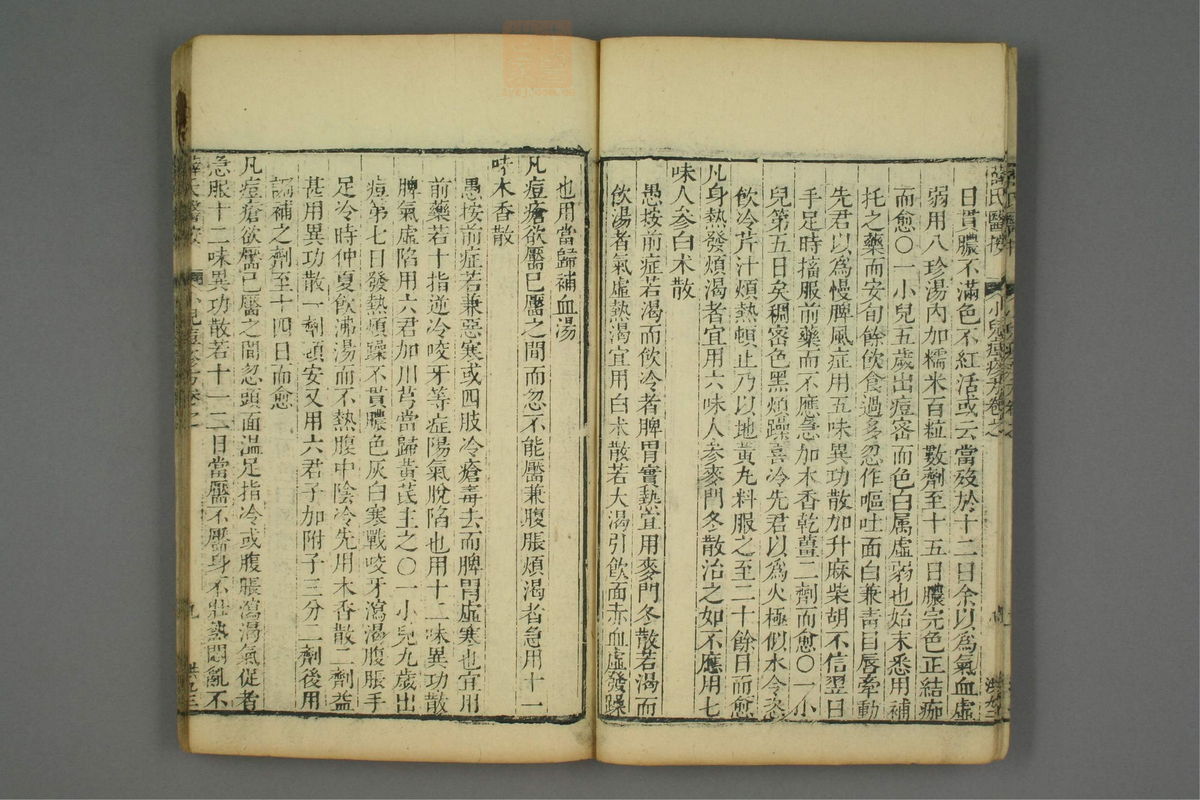 日貫膿不滿色不紅活或云當殁於十二日余以爲氣血虛
弱用八珍湯內加糯米百粒數劑至十五日膿完色正結痂
而愈〇一小兒五歲出痘密而色白属虛弱也始末悉用補
托之藥而安旬餘飲食過多忽作嘔吐面白兼青目唇牽動
先君以爲慢脾風症用五味異功散加升麻柴胡不信翌日
手足時搐服前藥而不應急加木香乾薑二劑而愈〇一小
兒第五日矣稠密色黑煩躁喜冷先君以爲火極似水令恣
飲冷芹汁煩熱頓止乃以地黃丸料服之至二十餘日而愈
凡身熱發煩渴者宜用六味人参麥門冬散治之如不應用七
味人参白术散
愚按前症若渴而飲冷者脾胃實熱宜用麥門冬散若渴而
飲湯者氣虛熱渴宜用白术散若大渴引飲面赤血虛發躁
也用當歸補血湯
凡痘瘡欲靨已靨之間而忽不能靨兼腹脹煩渴者急用十一
味木香散
愚按前症若兼惡寒或四肢冷瘡毒去而脾胃虛寒也宜用
前藥若十指逆冷咬牙等症陽氣脫陷也用十二味異功散
脾氣虛陷用六君加川芎當歸黃芪主之〇一小兒九歲出
痘第七日發熱煩躁不貫膿色灰白寒戰咬牙瀉渴腹脹手
足冷時仲夏飲沸湯而不熱腹中陰冷先用木香散二劑益
甚用異功散一劑頓安又用六君子加附子三分二劑後用
調補之劑至十四日而愈
凡痘瘡欲靨已靨之間忽頭面溫足指冷或腹脹瀉渴氣促者
急服十二味異功散若十一二日當靨不靨身不壯熱悶亂不